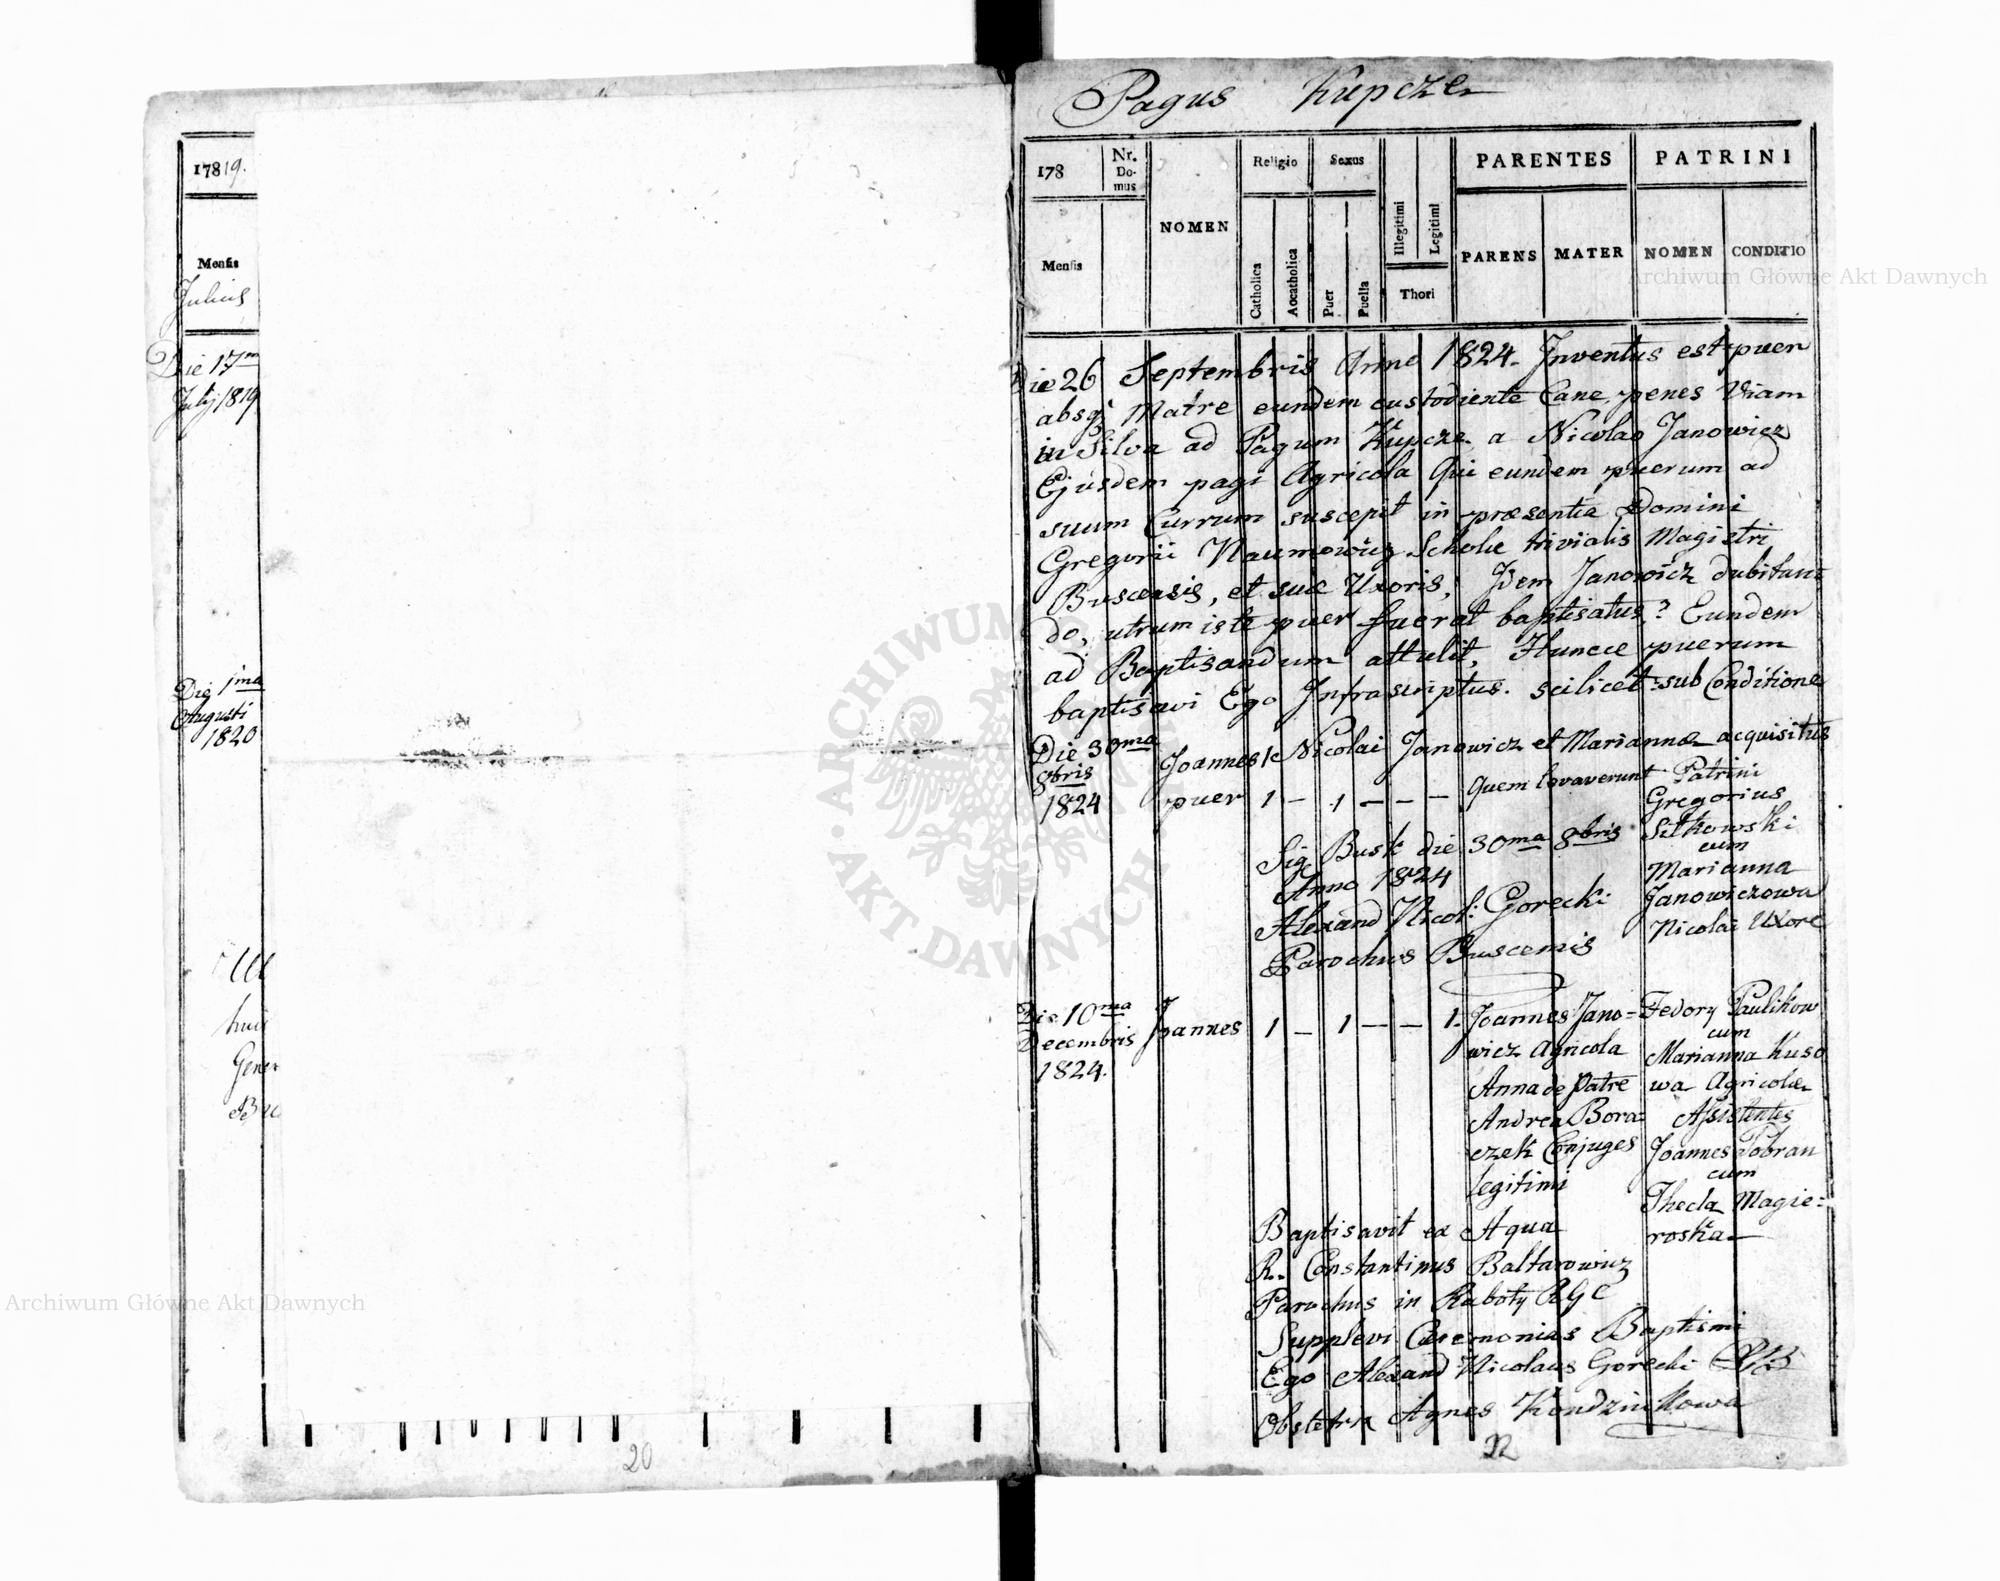 17819.
Mensis
Julius
Die 17m
Julij 1819
Die 1ma
Augusti
1820
hui
Gener
20
Pagus Kupcze
178
Nr.
Do-
mus
NOMEN
Religio
Sexus
Illegitimi
Legitimi
PARENTES
PATRINI
Mensis
Catholica
Aocatholica
Puer
Puella
Thori
PARENS
MATER
NOMEN
CONDITIO
Die 26 Septembris Anno 1824. Inventus est puer
absq; Matre eundem custodiente Cane, penes Viam
in Silva ad Pagum Kupcze a Nicolao Janowicz
Ejusdem pagi Agricola Qui eundem puerum ad
suum Currum suscepit in præsentia Domini
Gregorii Naumowicz Scholæ trivialis Magistri
Buscensis, et suæ Uxoris, Idem Janowicz dubitan
do, utrum iste puer fuerat baptisatus? Eundem
ad Baptisandum attulit, Huncce puerum
baptisavi Ego Infrascriptus. scilicet: sub Conditione
Die 30ma
8bris
1824
Joannes
puer
1 – 1 – – –
Nicolai Janowicz et Mariannæ acquisitus
Quem levaverunt Patrini
Gregorius
Sitkowski
cum
Marianna
Janowiczowa
Nicolai Uxore
Sig Busk die 30ma 8bris
Anno 1824
Alexand Nicol: Gorecki
Parochus Buscensis
Die 10ma
Decembris
1824.
Joannes
1 – 1 – – 1.
Joannes Jano=
wicz Agricola
Anna de Patre
Andrea Bora=
czek Conjuges
legitimi
Fedory Paulikow
cum
Marianna Kuso
wa Agricolæ
Assistentes
Joannes Pobran
cum
Thecla Magie=
roska
Baptisavit ex Aqua
R. Constantinus Baltarowicz
Parochus in Raboty RGC
Supplevi Cæremonias Baptismi
Ego Alexand Nicolaus Gorecki
Obstetrix Agnes Kondziukowa
22
ARCHIWUM GŁÓWNE AKT DAWNYCH
Archiwum Główne Akt Dawnych
Archiwum Główne Akt Dawnych